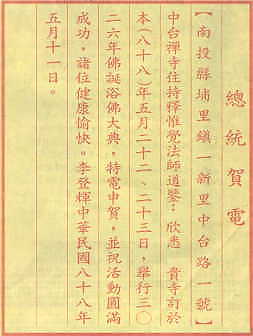 總統賀電
【南投縣埔里鎮一新里中台路一號】
中台禪寺住持釋惟覺法師道鑒：欣悉　貴寺訂於
本（八十八）年五月二十二、二十三日，舉行三〇
二六年佛誕浴佛大典，特電申賀，並祝活動圓滿
成功，諸位健康愉快。李登輝中華民國八十八年
五月十一日。